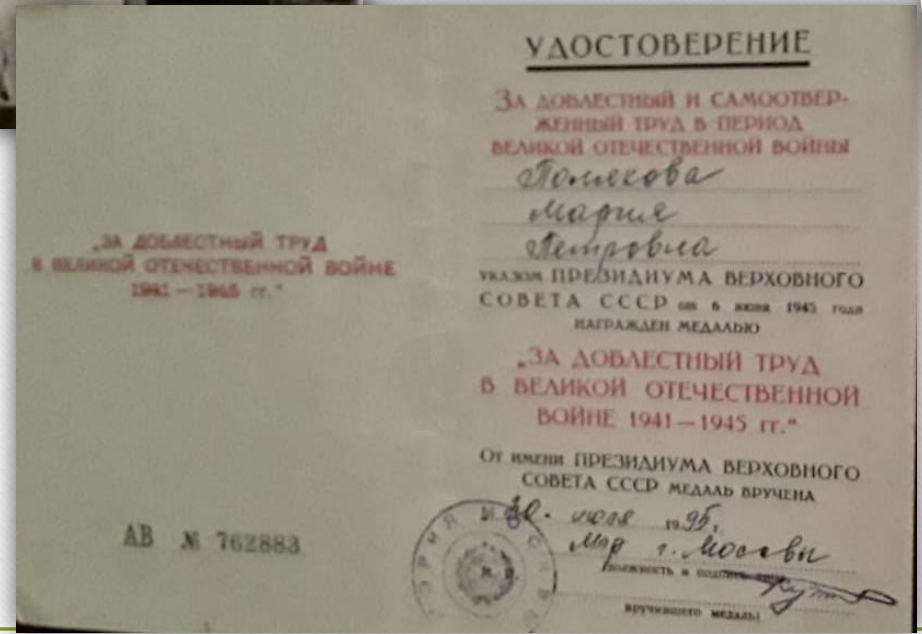 „ЗА ДОБЛЕСТНЫЙ ТРУД
В ВЕЛИКОЙ ОТЕЧЕСТВЕННОЙ ВОЙНЕ
1941 — 1945 гг.“
АВ № 762883
УДОСТОВЕРЕНИЕ
ЗА ДОБЛЕСТНЫЙ И САМООТВЕР-
ЖЕННЫЙ ТРУД В ПЕРИОД
ВЕЛИКОЙ ОТЕЧЕСТВЕННОЙ ВОЙНЫ
Полякова
Мария
Петровна
УКАЗОМ ПРЕЗИДИУМА ВЕРХОВНОГО
СОВЕТА СССР от 6 июня 1945 года
НАГРАЖДЕН МЕДАЛЬЮ
„ЗА ДОБЛЕСТНЫЙ ТРУД
В ВЕЛИКОЙ ОТЕЧЕСТВЕННОЙ
ВОЙНЕ 1941—1945 гг.“
От имени ПРЕЗИДИУМА ВЕРХОВНОГО
СОВЕТА СССР МЕДАЛЬ ВРУЧЕНА
июля 1995 г.
Мэр г. Москвы
должность и подпись
вручившего медаль)